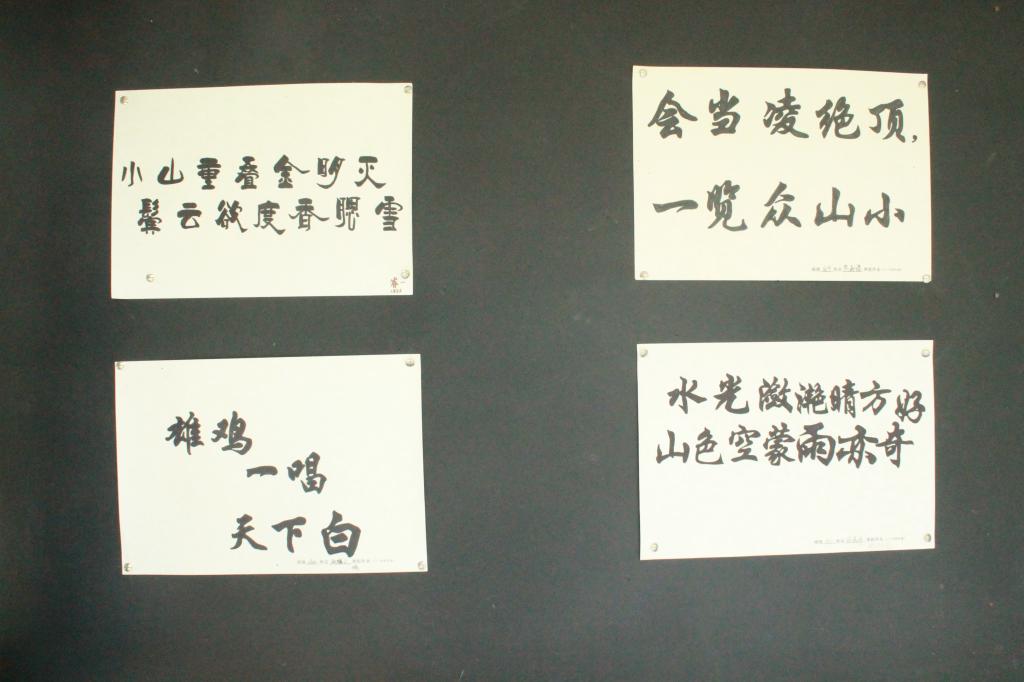 小山重叠金明灭
鬓云欲度香腮雪
会当凌绝顶,
一览众山小
雄鸡
一唱
天下白
水光潋滟晴方好
山色空蒙雨亦奇